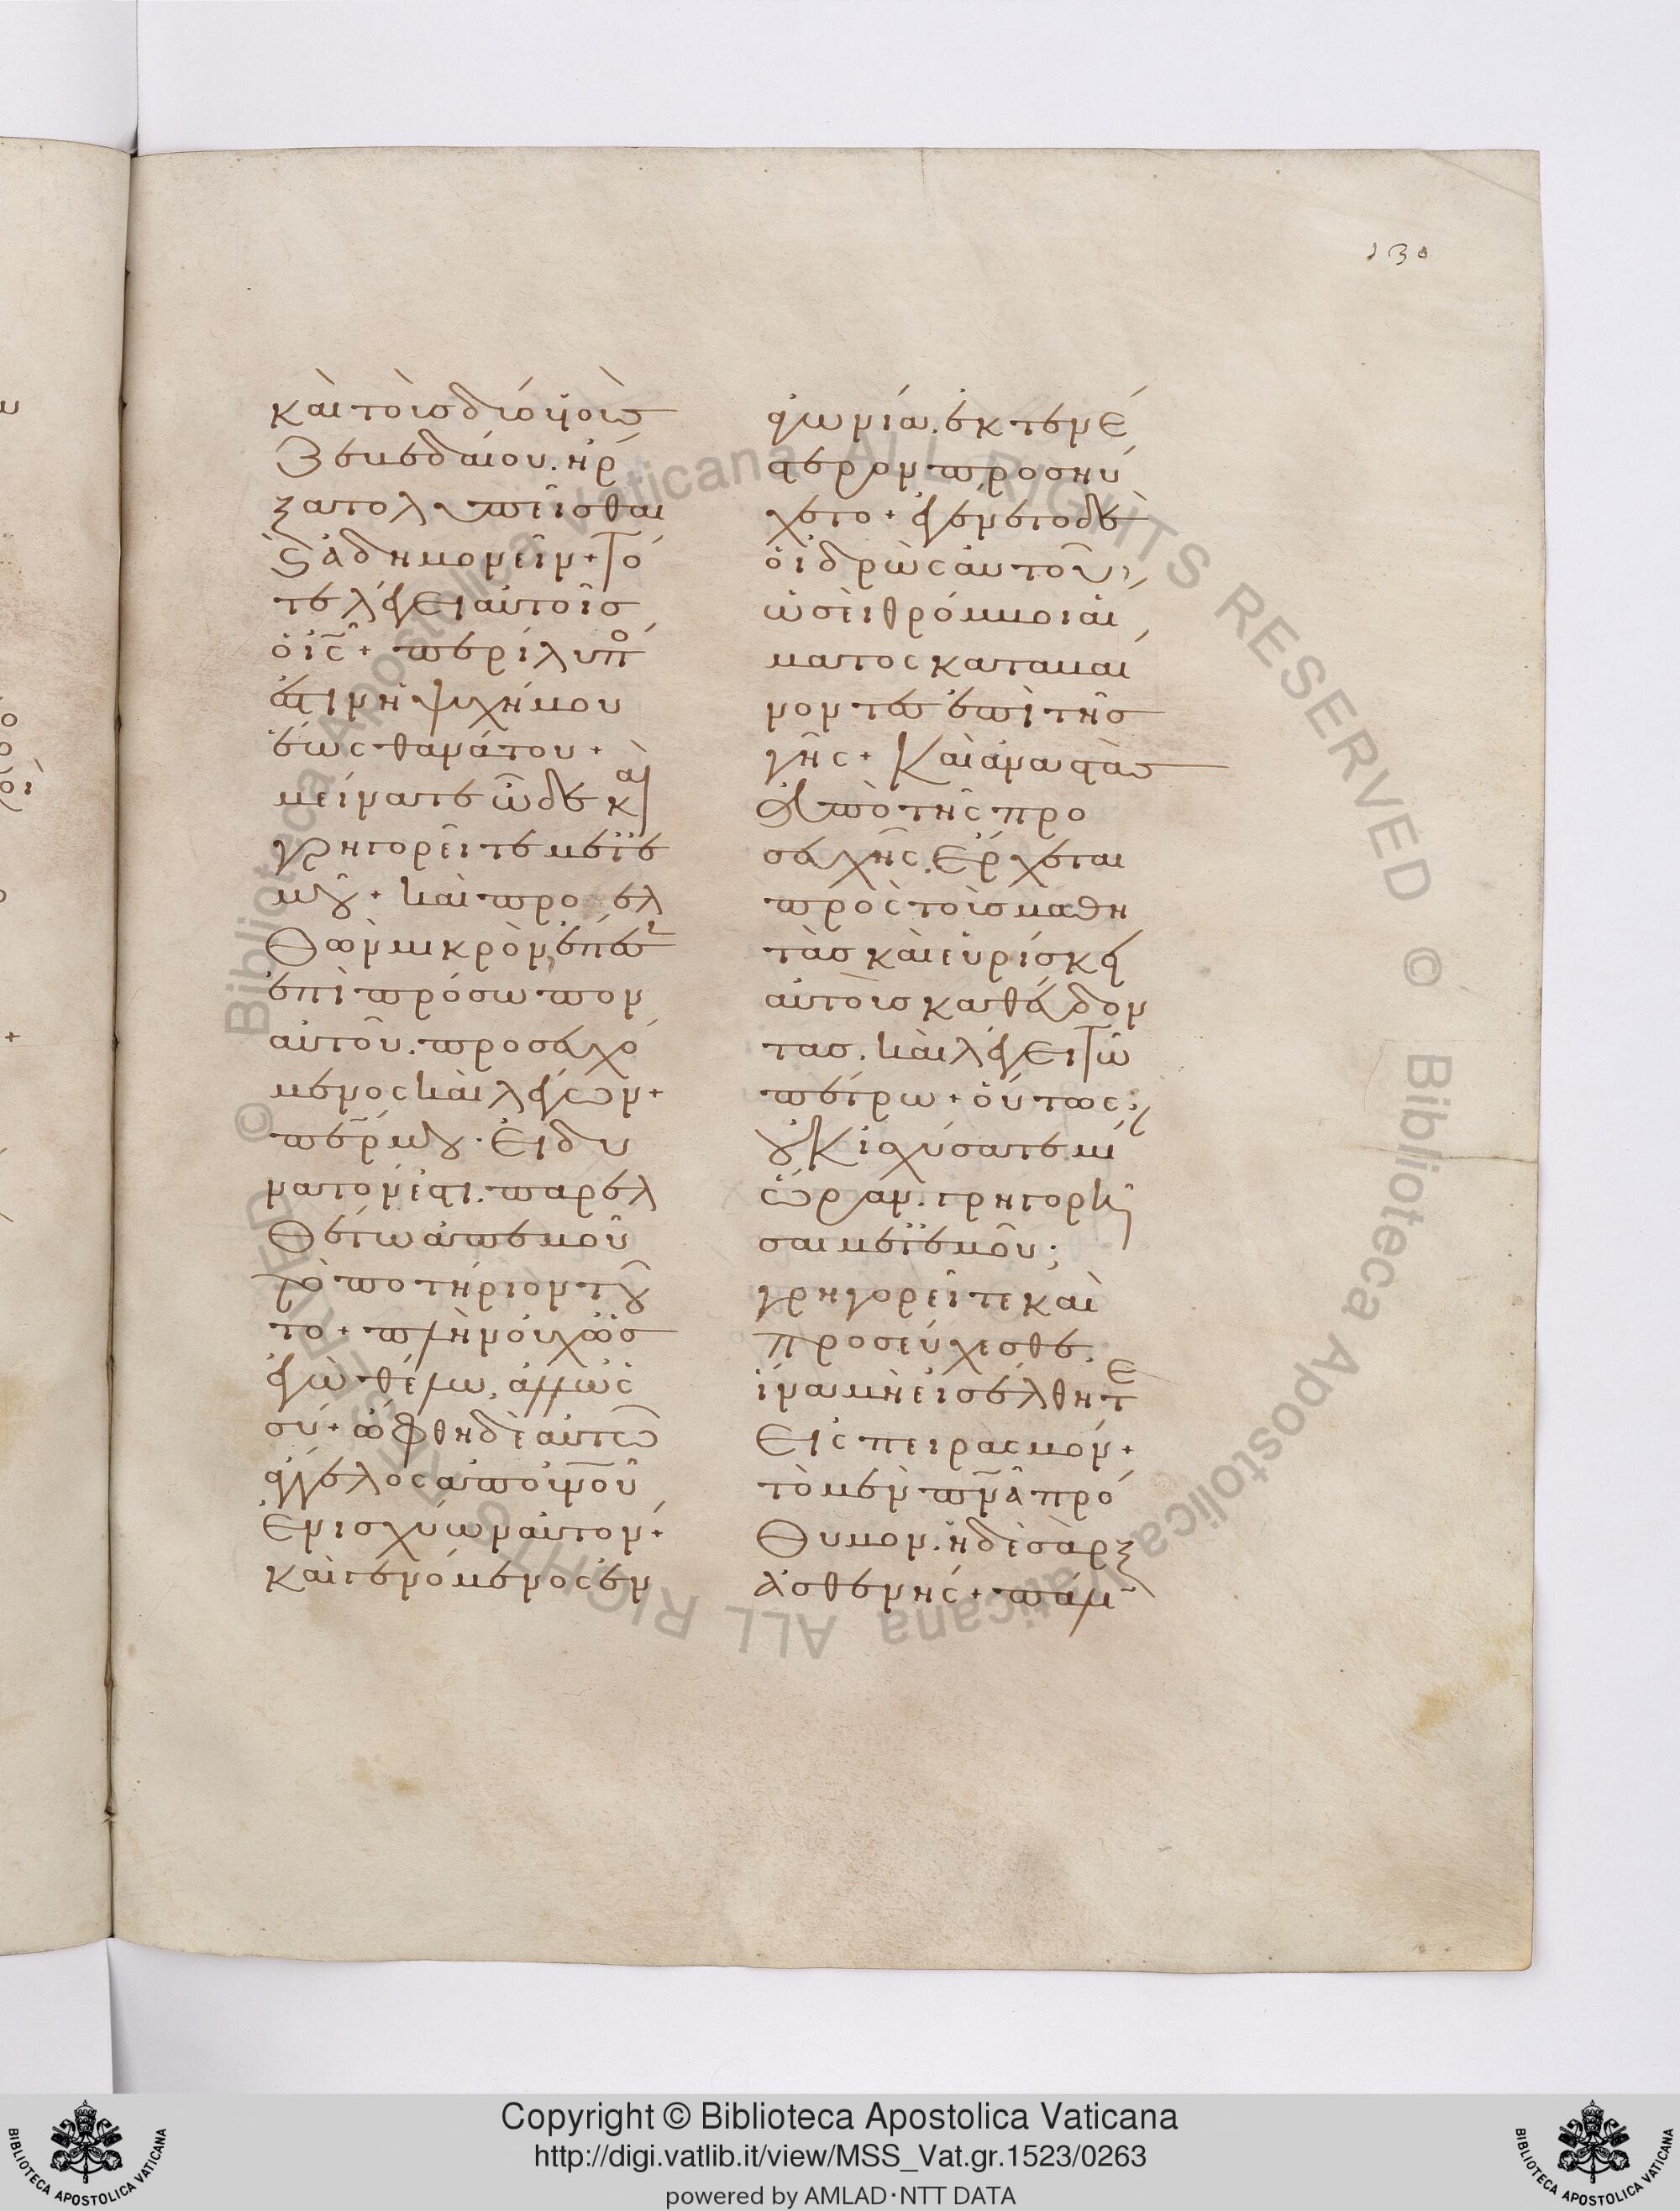 130
καὶ τοὺσ δύο ϋϊοὺσ
Ζεβεδαίου. ἤρ
ξατο λυπεῖσθαι
ϗ ἀδημονεῖν + Τό
τε λέγει αὐτοῖσ
ὁ ις̅ + περίλυπο
ἐστιν ἡ ψυχή μου
ἕως θανάτου +
μείνατε ὧδε καὶ
γρηγορεῖτε μετ ε
μοῦ + καὶ προελ
θὼν μικρὸν ἔπεσεν
ἐπὶ πρόσωπον
αὐτοῦ. προσευχό
μενος καὶ λέγων +
πε̅ρ μου. Εἰ δυ
νατόν ἐστι. παρελ
θέτω ἀπ εμοῦ
τὸ ποτήριον τοῦ
το + πλὴν οὐχ ὡσ
ἐγὼ θέλω, ἀλλ ὡς
σύ + ὤφθη δὲ αὐτῶ
ἄγγελος ἀπ ου̅νου
ἐνισχύων αὐτον +
καὶ γενόμενος ἐν
ἀγωνία. ἐκτενέ
στερον προσηύ
χετο + ἐγένετο δὲ
ὁ ἱδρὼς αὐτοῦ
ὡσεὶ θρόμβοι αἵ
ματος καταβαί
νοντεσ ἐπὶ τῆσ
γῆς + Καὶ ἀναστὰσ
ἀπὸ τῆς προ
σευχῆς. Ερχεται
πρὸς τοὺσ μαθη
τὰσ καὶ ευρίσκει
αὐτοὺσ καθεύδον
τασ. καὶ λέγει Τῶ
πέτρω + οὕτως
οὐκ ισχύσατε μί
αν ὥραν. γρηγορῆ
σαι μετ εμοῦ;
γρηγορεῖτε καὶ
προσεύχεσθε.
ἵνα μὴ εἰσέλθητε
Εἰς πειρασμόν +
τὸ μὲν πν̅α πρό
θυμον. ἡ δὲ σὰρξ
ἀσθενής + πάλιν
Copyright © Biblioteca Apostolica Vaticana
http://digi.vatlib.it/view/MSS_Vat.gr.1523/0263
powered by AMLAD·NTT DATA
BIBLIOTECA APOSTOLICA VATICANA
BIBLIOTECA APOSTOLICA VATICANA
© Biblioteca Apostolica Vaticana ALL RIGHTS RESERVED
© Biblioteca Apostolica Vaticana ALL RIGHTS RESERVED